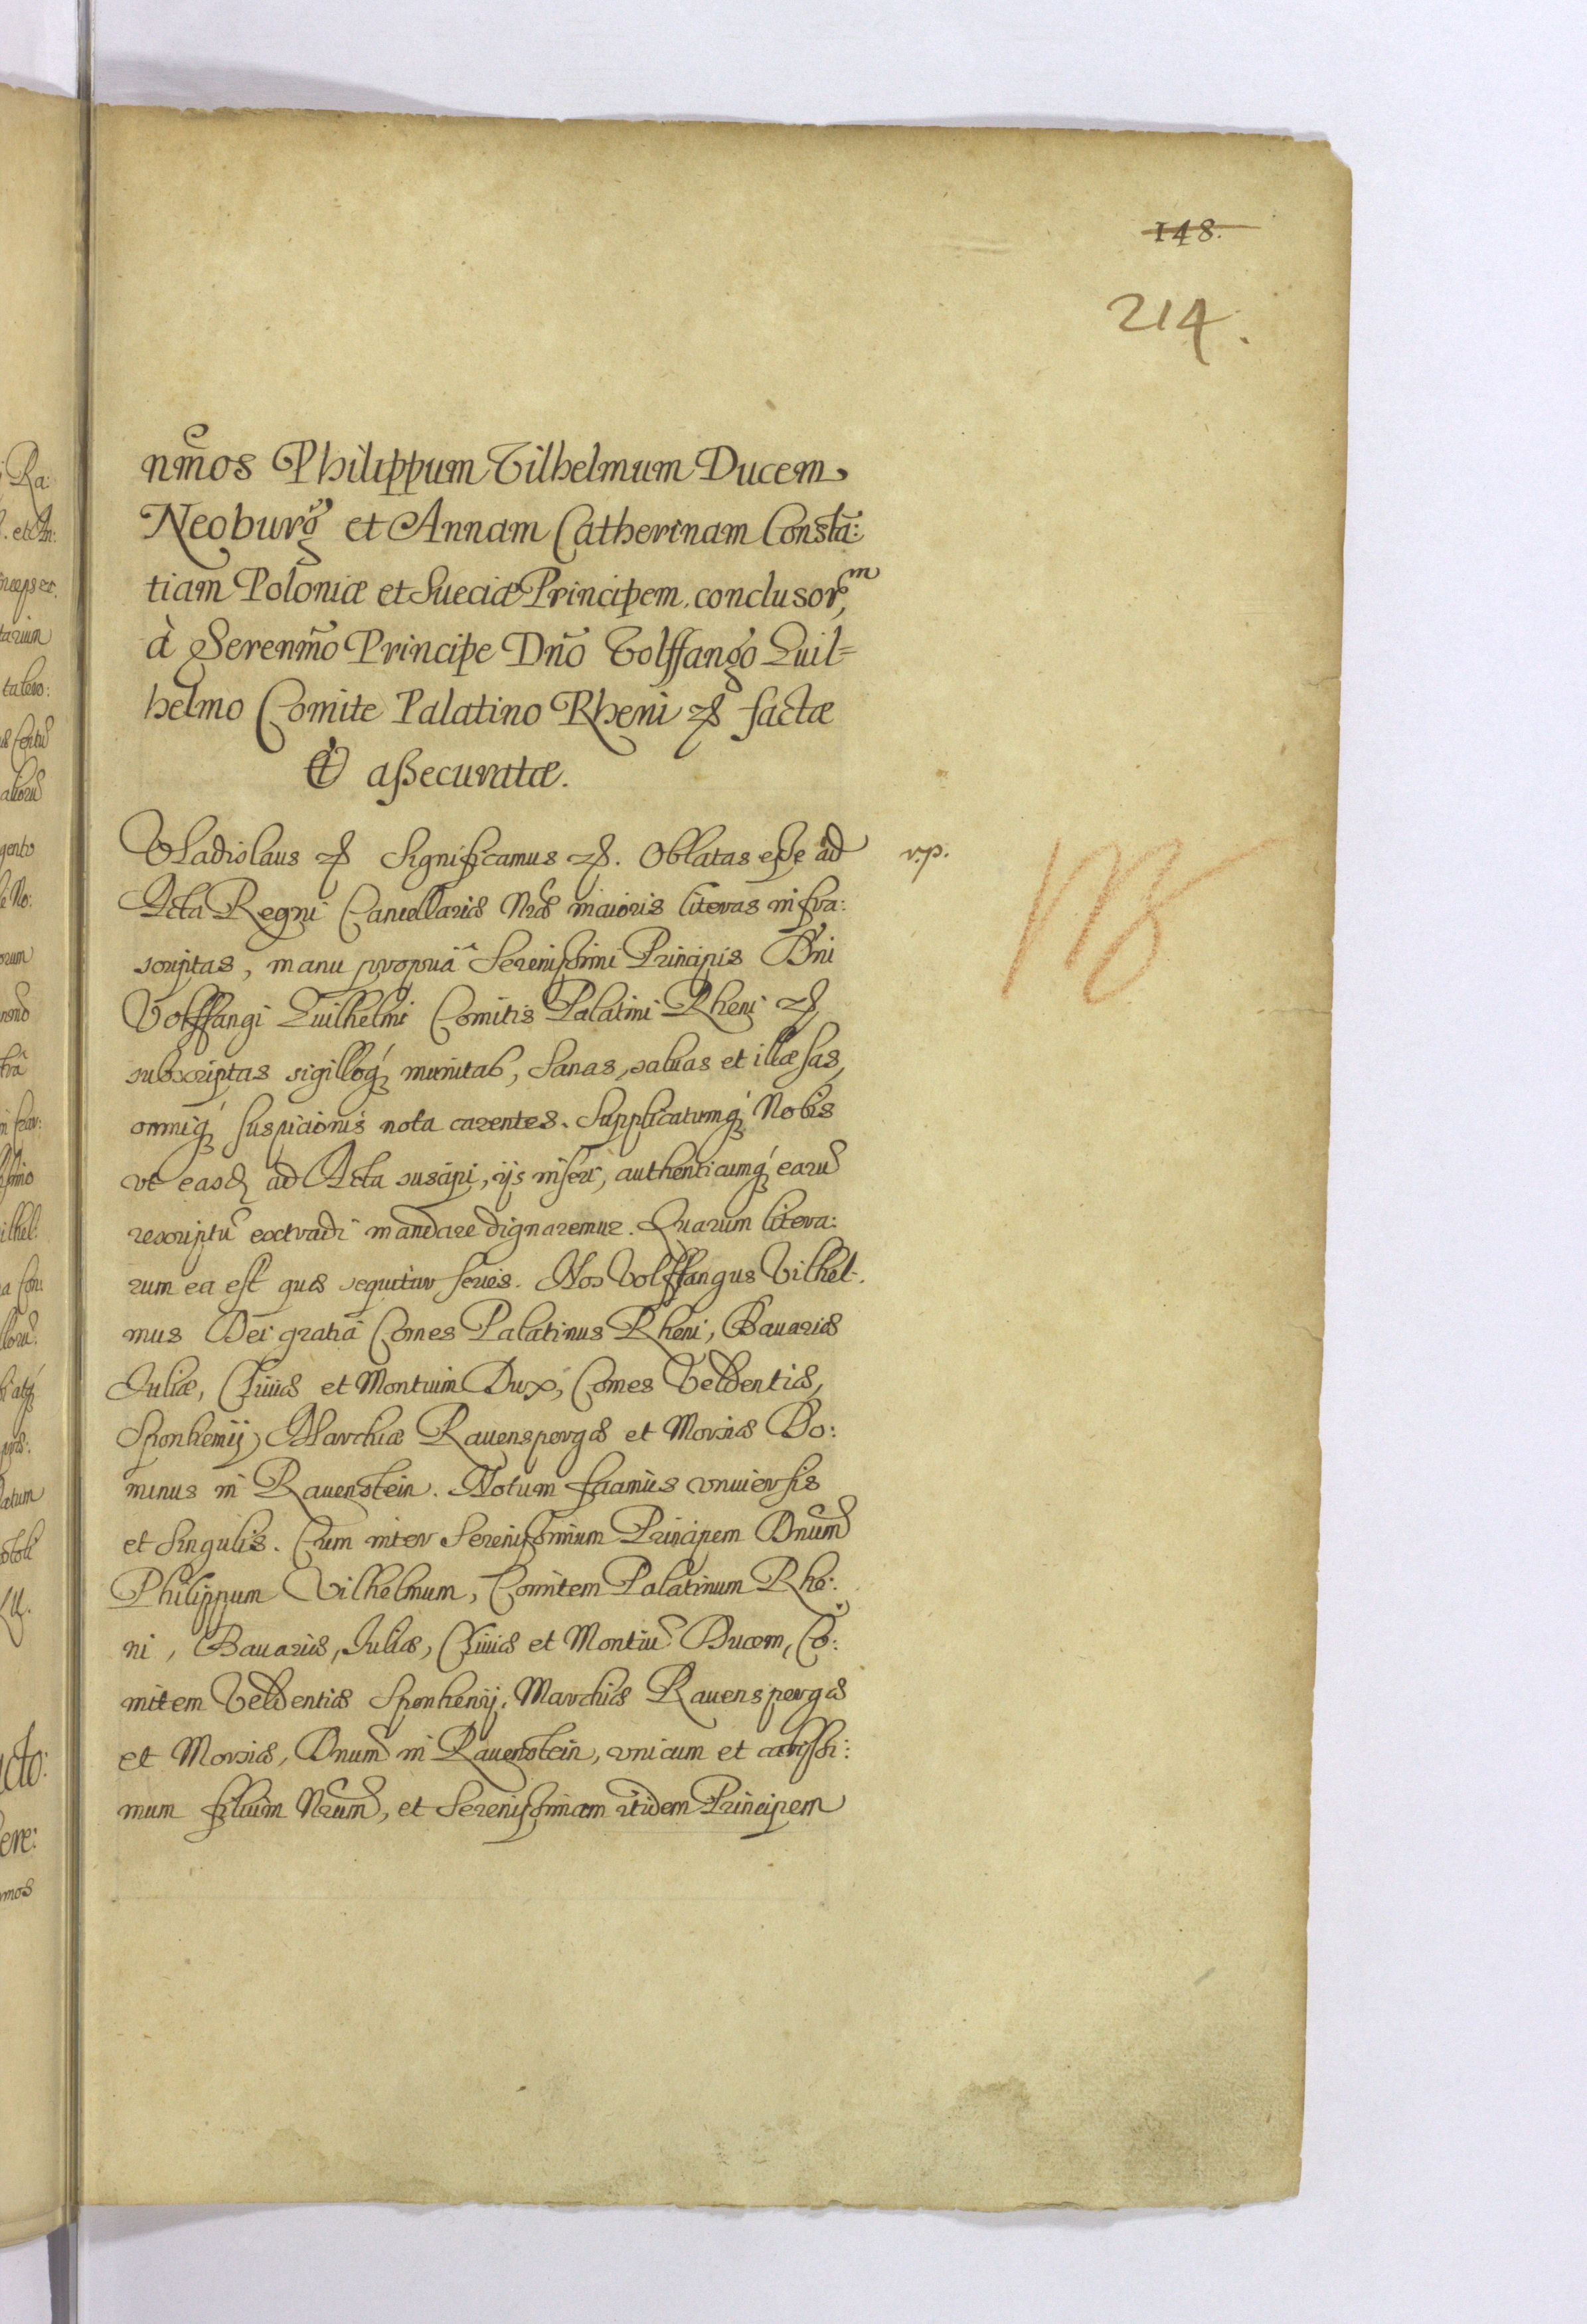 148.
214.
nm̃os Philippum Vilhelmum Ducem
Neoburg̃ et Annam Catherinam Constã:
tiam Poloniæ et Sueciæ Principem, conclusorᵐ,
à Serenm̃o Principe Dño Volffango Quil=
helmo Comite Palatino Rheni etc̃ factæ
et aßecuratæ.
Vladislaus etc̃ Significamus etc̃. Oblatas esse ad
v.p.
Acta Regni Cancellariæ Nræ maioris literas infra:
scriptas, manu propriâ Serenissimi Principis Dñi
Volffangi Quilhelmi Comitis Palatini Rheni etc̃
subscriptas sigilloq́ munitas, Sanas, saluas et illæsas,
omniq́ suspicionis nota carentes. Supplicatumq́ Nobis
vt easdẽ ad Acta suscipi, ijs inseri, authenticumq́ earũ
rescriptũ extradi mandare dignaremur. Quarum litera:
rum ea est quæ sequitur series. Nos Volffangus Vilhel:
mus Dei gratiâ Comes Palatinus Rheni, Bauariæ
Iuliæ, Cliuiæ et Montium Dux, Comes Veldentiæ,
Sponhemij, Marchiæ Rauenspergæ et Morsiæ Do:
minus in Rauenstein. Notum facimus vniuersis
et singulis. Cum inter Serenissimum Principem Dnum
Philippum Vilhelmum, Comitem Palatinum Rhe:
ni, Bauariæ, Iuliæ, Cliuiæ et Montiũ Ducem, Co:
mitem Veldentiæ Sponhemij, Marchiæ Rauenspergæ
et Morsiæ, Dnum in Rauenstein, vnicum et carissi:
mum filium Nrum, et Serenissimam itidem Principem